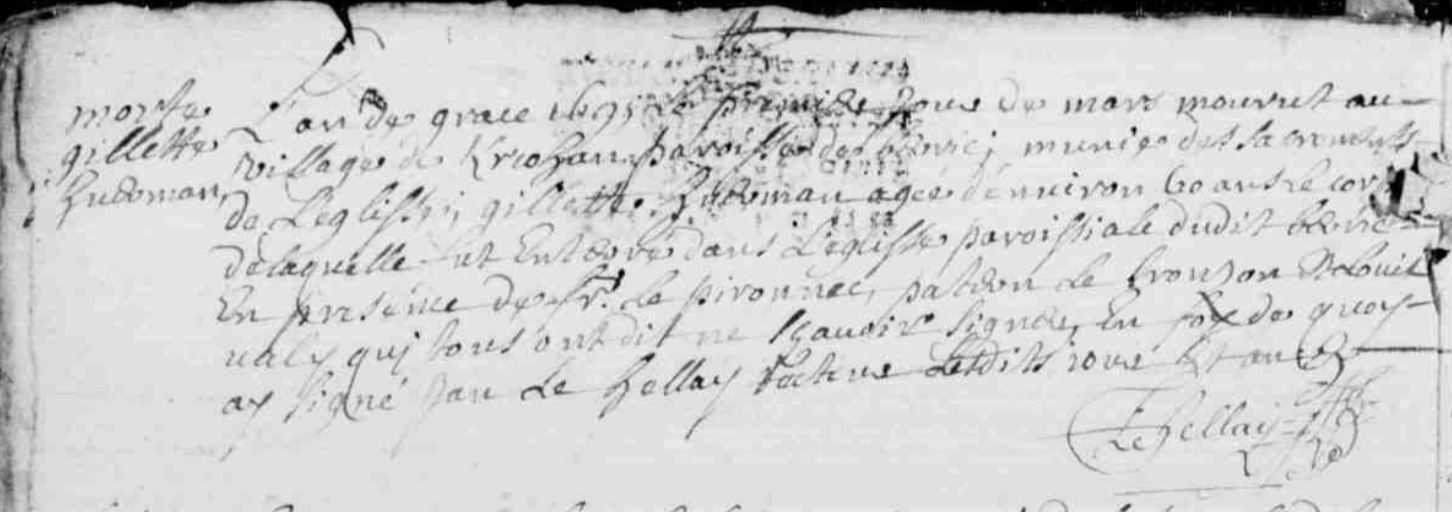 morte
gillette
huerman
L'an de grace 1695 le premier jour de mars mourut au
village de Kriohan paroisse de berric, munie des sacrements
de L'eglisse, gillette huerman agée d'enuiron 60 ans le corps
de laquelle fut Enterré dans L'eglisse paroissiale dudit berric
En presence de fr. le pironnec, patern Le et Louis
ualy quj tous ont dit ne scauoir signer, En foy de quoy
ay signé jan Le hellay recteur Lesdits jour Et an
Le hellay